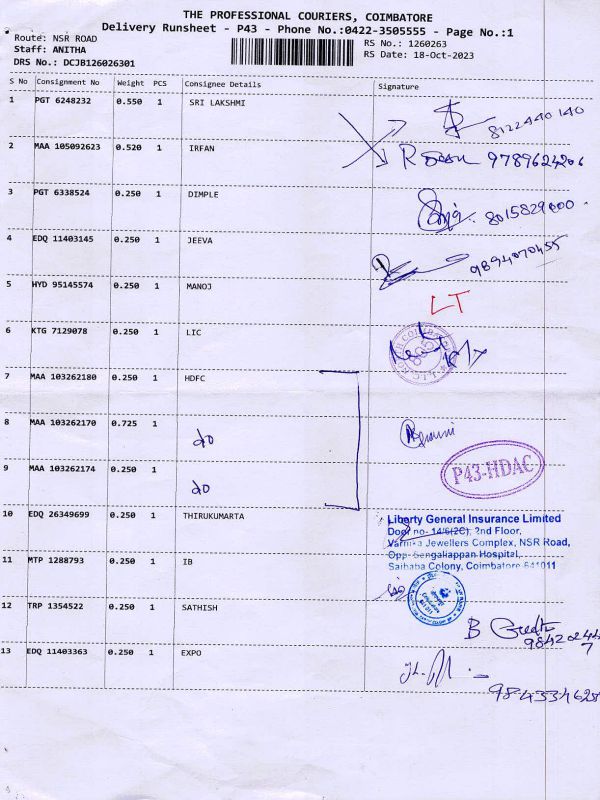 THE PROFESSIONAL COURIERS, COIMBATORE
Delivery Runsheet - P43 - Phone No.:0422-3505555 - Page No.:1
Route: NSR ROAD
Staff: ANITHA
DRS No.: DCJB126026301
RS No.: 1260263
RS Date: 18-Oct-2023
S No Consignment No Weight PCS Consignee Details Signature
1 PGT 6248232 0.550 1 SRI LAKSHMI
8122440140
2 MAA 105092623 0.520 1 IRFAN 9789624206
3 PGT 6338524 0.250 1 DIMPLE
8015829000
4 EDQ 11403145 0.250 1 JEEVA
9894070455
5 HYD 95145574 0.250 1 MANOJ
LT
6 KTG 7129078 0.250 1 LIC
7 MAA 103262180 0.250 1 HDFC
8 MAA 103262170 0.725 1
do
9 MAA 103262174 0.250 1
do
P43-HDAC
10 EDQ 26349699 0.250 1 THIRUKUMARTA
Liberty General Insurance Limited
Door no- 14/6(2C), 2nd Floor,
Varnika Jewellers Complex, NSR Road,
Opp- Sengaliappan Hospital,
Saibaba Colony, Coimbatore 641011
11 MTP 1288793 0.250 1 IB
12 TRP 1354522 0.250 1 SATHISH
B
13 EDQ 11403363 0.250 1 EXPO